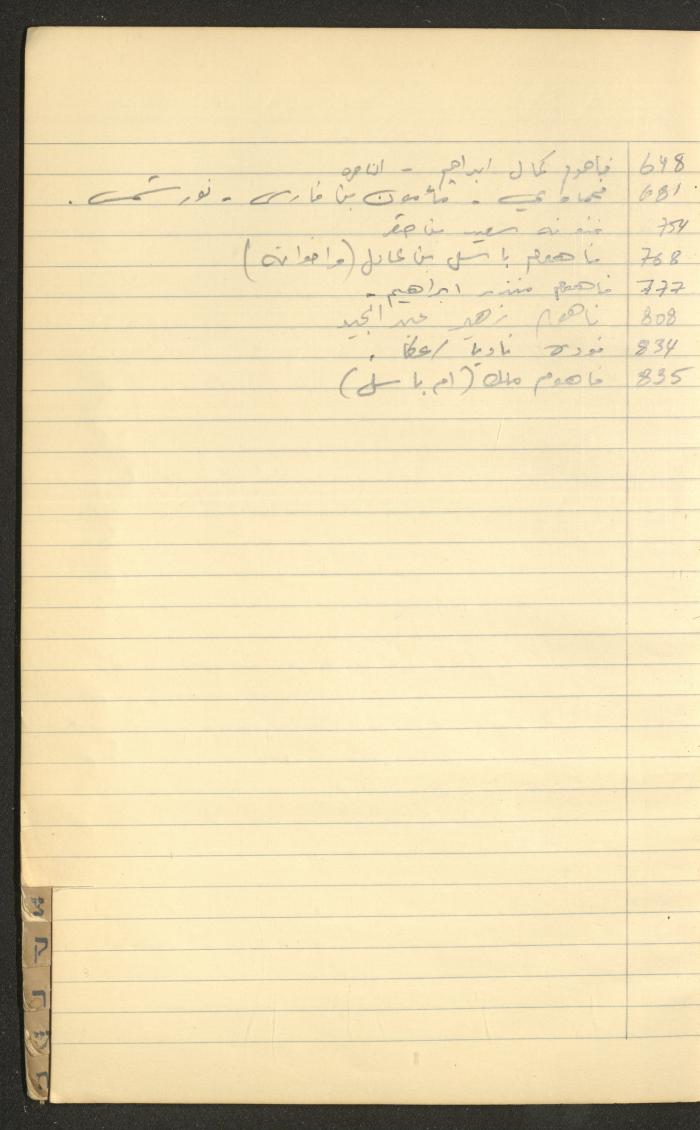 648 فاهوم كمال ابراهيم - الناصره
681 فحماوي - مأمون بن فارس - نور شمس .
754 سعيد
768 فاهوم باسل بن عادل (واخوانه)
777 فاهوم منذر ابراهيم -
808 فاهوم زهير عبد المجيد
834 فوده ناديا / عكا .
835 فاهوم ملك (ام باسل)
צ
ק
ר
ש
ת